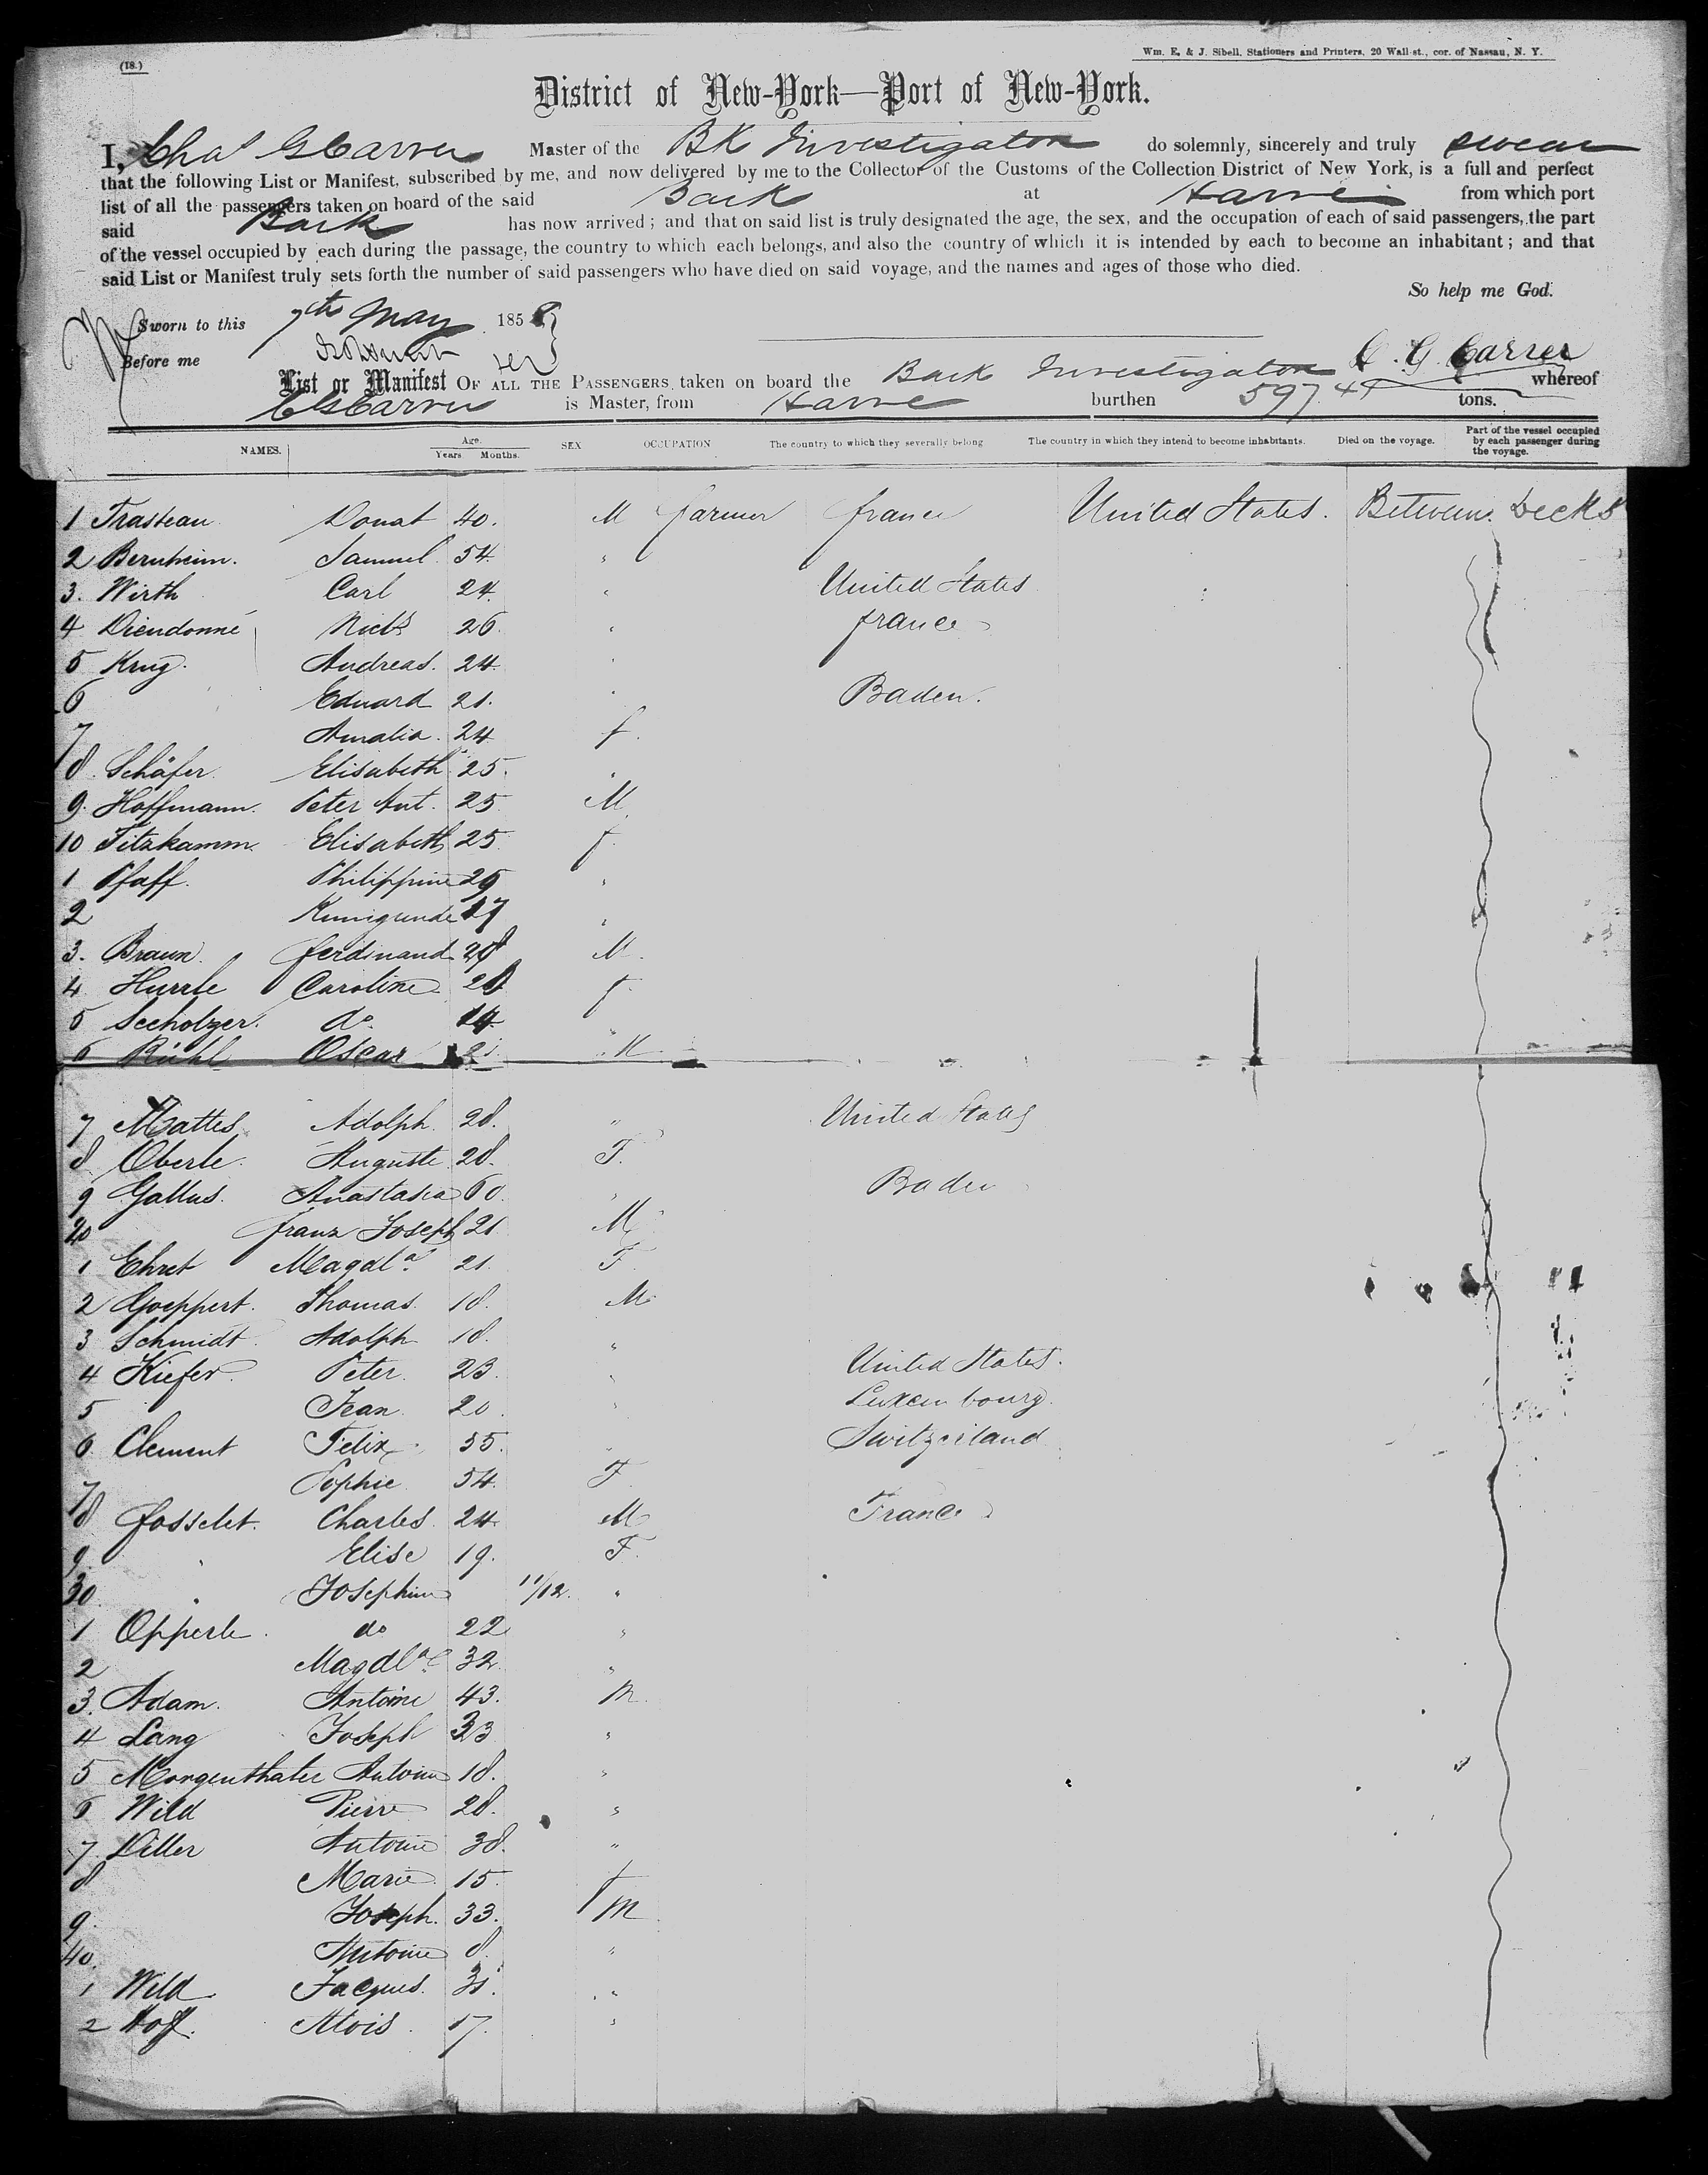 (18.)
Wm. E. & J. Sibell, Stationers and Printers, 20 Wall-st., cor. of Nassau, N. Y.
District of New-York—Port of New-York.
I, Chas G Carver Master of the BK Investigator do solemnly, sincerely and truly swear
that the following List or Manifest, subscribed by me, and now delivered by me to the Collector of the Customs of the Collection District of New York, is a full and perfect
list of all the passengers taken on board of the said Bark at Havre from which port
said Bark has now arrived; and that on said list is truly designated the age, the sex, and the occupation of each of said passengers, the part
of the vessel occupied by each during the passage, the country to which each belongs, and also the country of which it is intended by each to become an inhabitant; and that
said List or Manifest truly sets forth the number of said passengers who have died on said voyage, and the names and ages of those who died.
So help me God.
Sworn to this 7th May 1858
Before me
C. G. Carver
List or Manifest OF ALL THE PASSENGERS taken on board the Bark Investigator whereof
C G Carver is Master, from Havre burthen 597 tons.
NAMES. Age. Years Months. SEX OCCUPATION The country to which they severally belong The country in which they intend to become inhabitants. Died on the voyage. Part of the vessel occupied by each passenger during the voyage.
1 Trasteau Donat 40. M farmer france United States. Between Decks
2 Bernheim. Samuel 54. "
3. Wirth Carl 24. " United States
4 Dieudonné Nichs 26. " france
5 Krug. Andreas. 24. "
6 Eduard 21. " Baden.
7 Amalia. 24 f.
8. Schäfer. Elisabeth 25. "
9. Hoffmann. Peter Ant. 25 M
10 Fitzkamm. Elisabeth 25. f.
1 Pfaff. Philippine 29 "
2 Kunigunde 27 "
3. Braun. ferdinand 28 M.
4 Hurrle Caroline 21 f
5 Seeholzer. do. 14 "
6 Rühl Oscar 21 M
7 Mattes Adolph. 28. " United States
8 Oberle. Auguste. 28. F.
9 Gallus. Anastasia 60. " Baden
20 franz Joseph 21 M
1 Ehret Magdla. 21. F.
2 Goeppert. Thomas. 18. M
3 Schmidt Adolph 18. "
4 Kiefer. Peter. 23. " United States.
5 Jean. 20. " Luxembourg.
6 Clement Felix 55. " Switzerland
7 Sophie 54. F
8 fosselet. Charles 24. M France
9. " Elise 19. F.
30. " Josephine 11/12. "
1 Opperle. do 22 "
2 Magdlne 32. "
3. Adam. Antoine 43. M.
4 Lang Joseph 33 "
5 Morgenthaler Antoine 18. "
6 Wild Pierre 28. "
7. Diller Antoine 38. "
8 Marie. 15. f
9. Joseph. 33. M
40. Antoine 8. "
1 Wild Jacques. 31. "
2 Hoff. Alois. 17. "